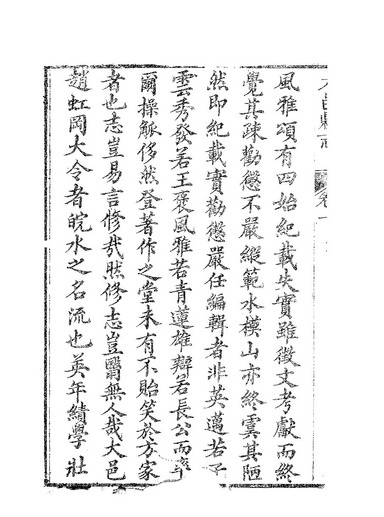 大邑縣志 卷一
風雅頌有四始紀載失實雖徵文考獻而終
覺其疎勸懲不嚴縱範水模山亦終寞其陋
然即紀載實勸懲嚴任編輯者非英邁若子
雲秀發若王襃風雅若青蓮雄辯若長公而
爾操觚侈然登著作之堂未有不貽笑於方家
者也志豈易言修哉然修志豈屬無人哉大邑
趙虹岡大令者皖水之名流也英年績學壯